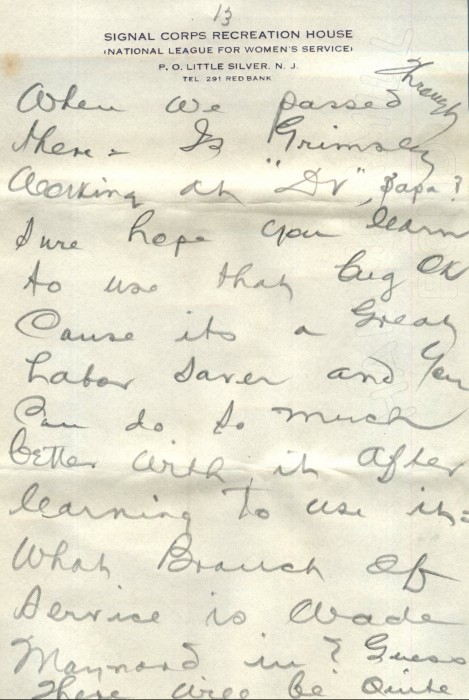 13
SIGNAL CORPS RECREATION HOUSE
(NATIONAL LEAGUE FOR WOMEN'S SERVICE)
P. O. LITTLE SILVER, N. J.
TEL. 291 RED BANK
When we passed through
there - Is Grimsley
Working at "Dv", Papa?
Sure hope you learn
to use that bug OK
Cause its a Great
Labor Saver and You
Can do so much
better with it after
learning to use it =
What Branch of
Service is Wade
Maynard in? Guess
There will be Quite